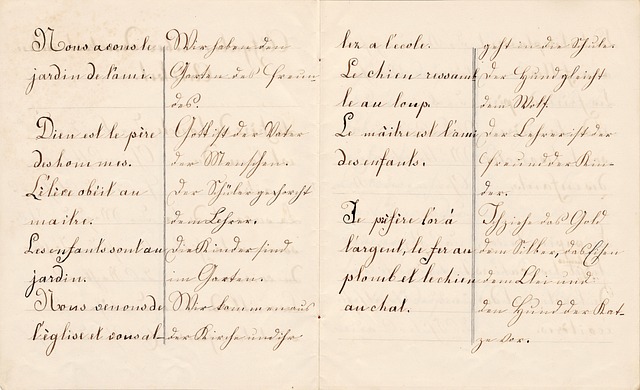 Nous avons le
jardin de l'ami.
Dieu est le père
des hommes.
L'élève obéit au
maître.
Les enfants sont au
jardin.
Nous venons de
l'église et vous al-
Wir haben den
Garten des Freun-
des.
Gott ist der Vater
der Menschen.
Der Schüler gehorcht
dem Lehrer.
Die Kinder sind
im Garten.
Wir kommen aus
der Kirche und ihr
lez a l'école.
Le chien ressemb
le au loup.
Le maître est l'ami
des enfants.
Je préfère l'or à
l'argent, le fer au
plomb et le chien
au chat.
geht in die Schule.
Der Hund gleicht
dem Wolf.
Der Lehrer ist der
Freund der Kin-
der.
Ich ziehe das Gold
dem Silber, das Eisen
dem Blei und
den Hund der Kat-
ze vor.